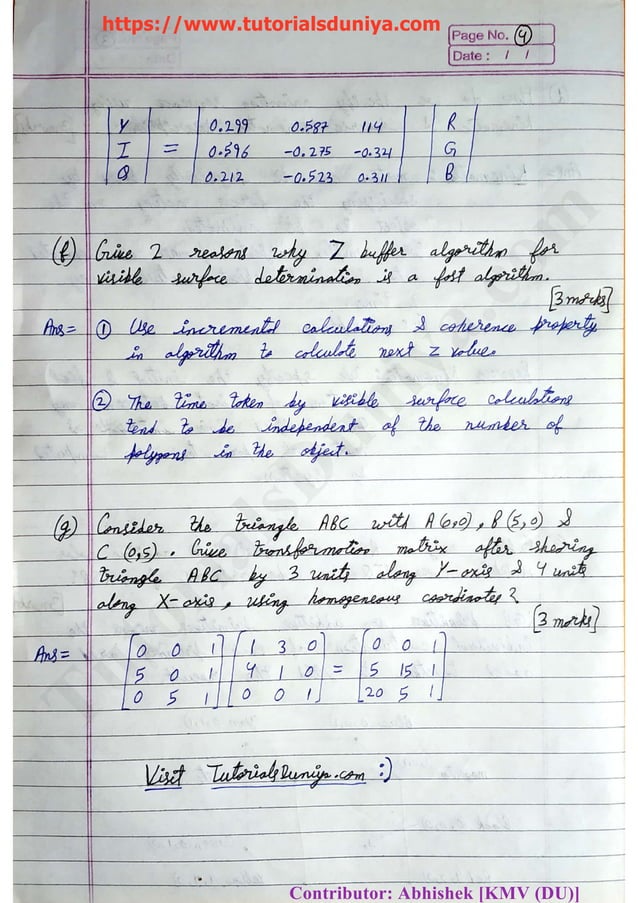 https://www.tutorialsduniya.com
Page No. 4
Date : / /
Y 0.299 0.587 114 R
I = 0.596 -0.275 -0.321 G
Q 0.212 -0.523 0.311 B
(f) Give 2 reasons why Z buffer algorithm for
visible surface determination is a fast algorithm.
[3 marks]
Ans = ① Use incremental calculations & coherence property
in algorithm to calculate next z value.
② The time taken by visible surface calculations
tend to be independent of the number of
polygons in the object.
(g) Consider the triangle ABC with A(0,0), B(5,0) &
C (0,5). Give transformation matrix after shearing
triangle ABC by 3 units along Y-axis & 4 units
along X-axis, using homogeneous coordinates?
[3 marks]
Ans = [0 0 1] [1 3 0] [0 0 1]
[5 0 1] [4 1 0] = [5 15 1]
[0 5 1] [0 0 1] [20 5 1]
Visit TutorialsDuniya.com :)
Contributor: Abhishek [KMV (DU)]